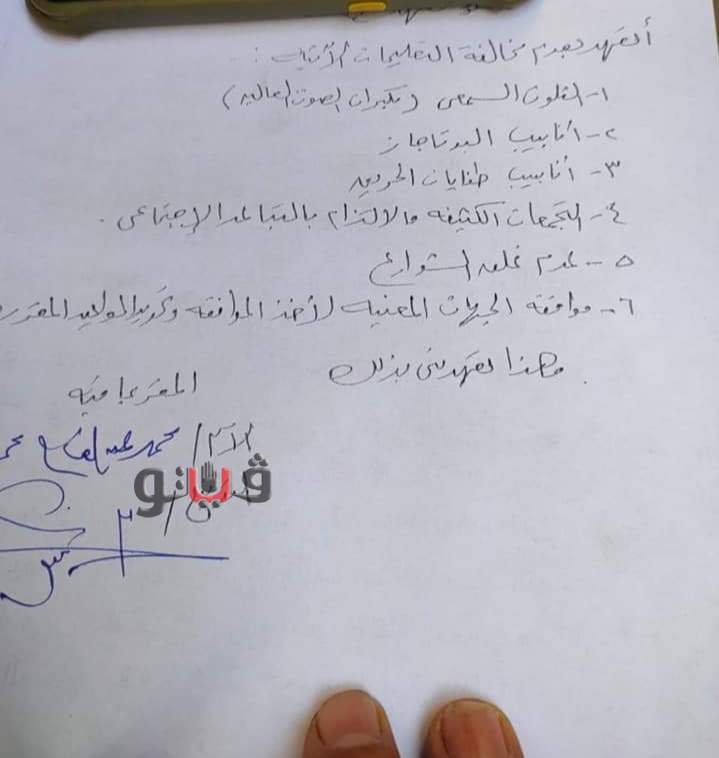 أتعهد بعدم مخالفة التعليمات الأتية :-
١- التلوث السمعى (مكبرات الصوت العاليه)
٢- أنابيب البوتاجاز
٣- أنابيب طفايات الحريق
٤- التجمعات الكثيفه والالتزام بالتباعد الإجتماعى .
٥- عدم غلق الشوارع
٦- موافقة الجهات المعنيه لأخذ الموافقه
وهذا تعهد منى بذلك
المقر بما فيه
الاسم / محمد
ڤيتو